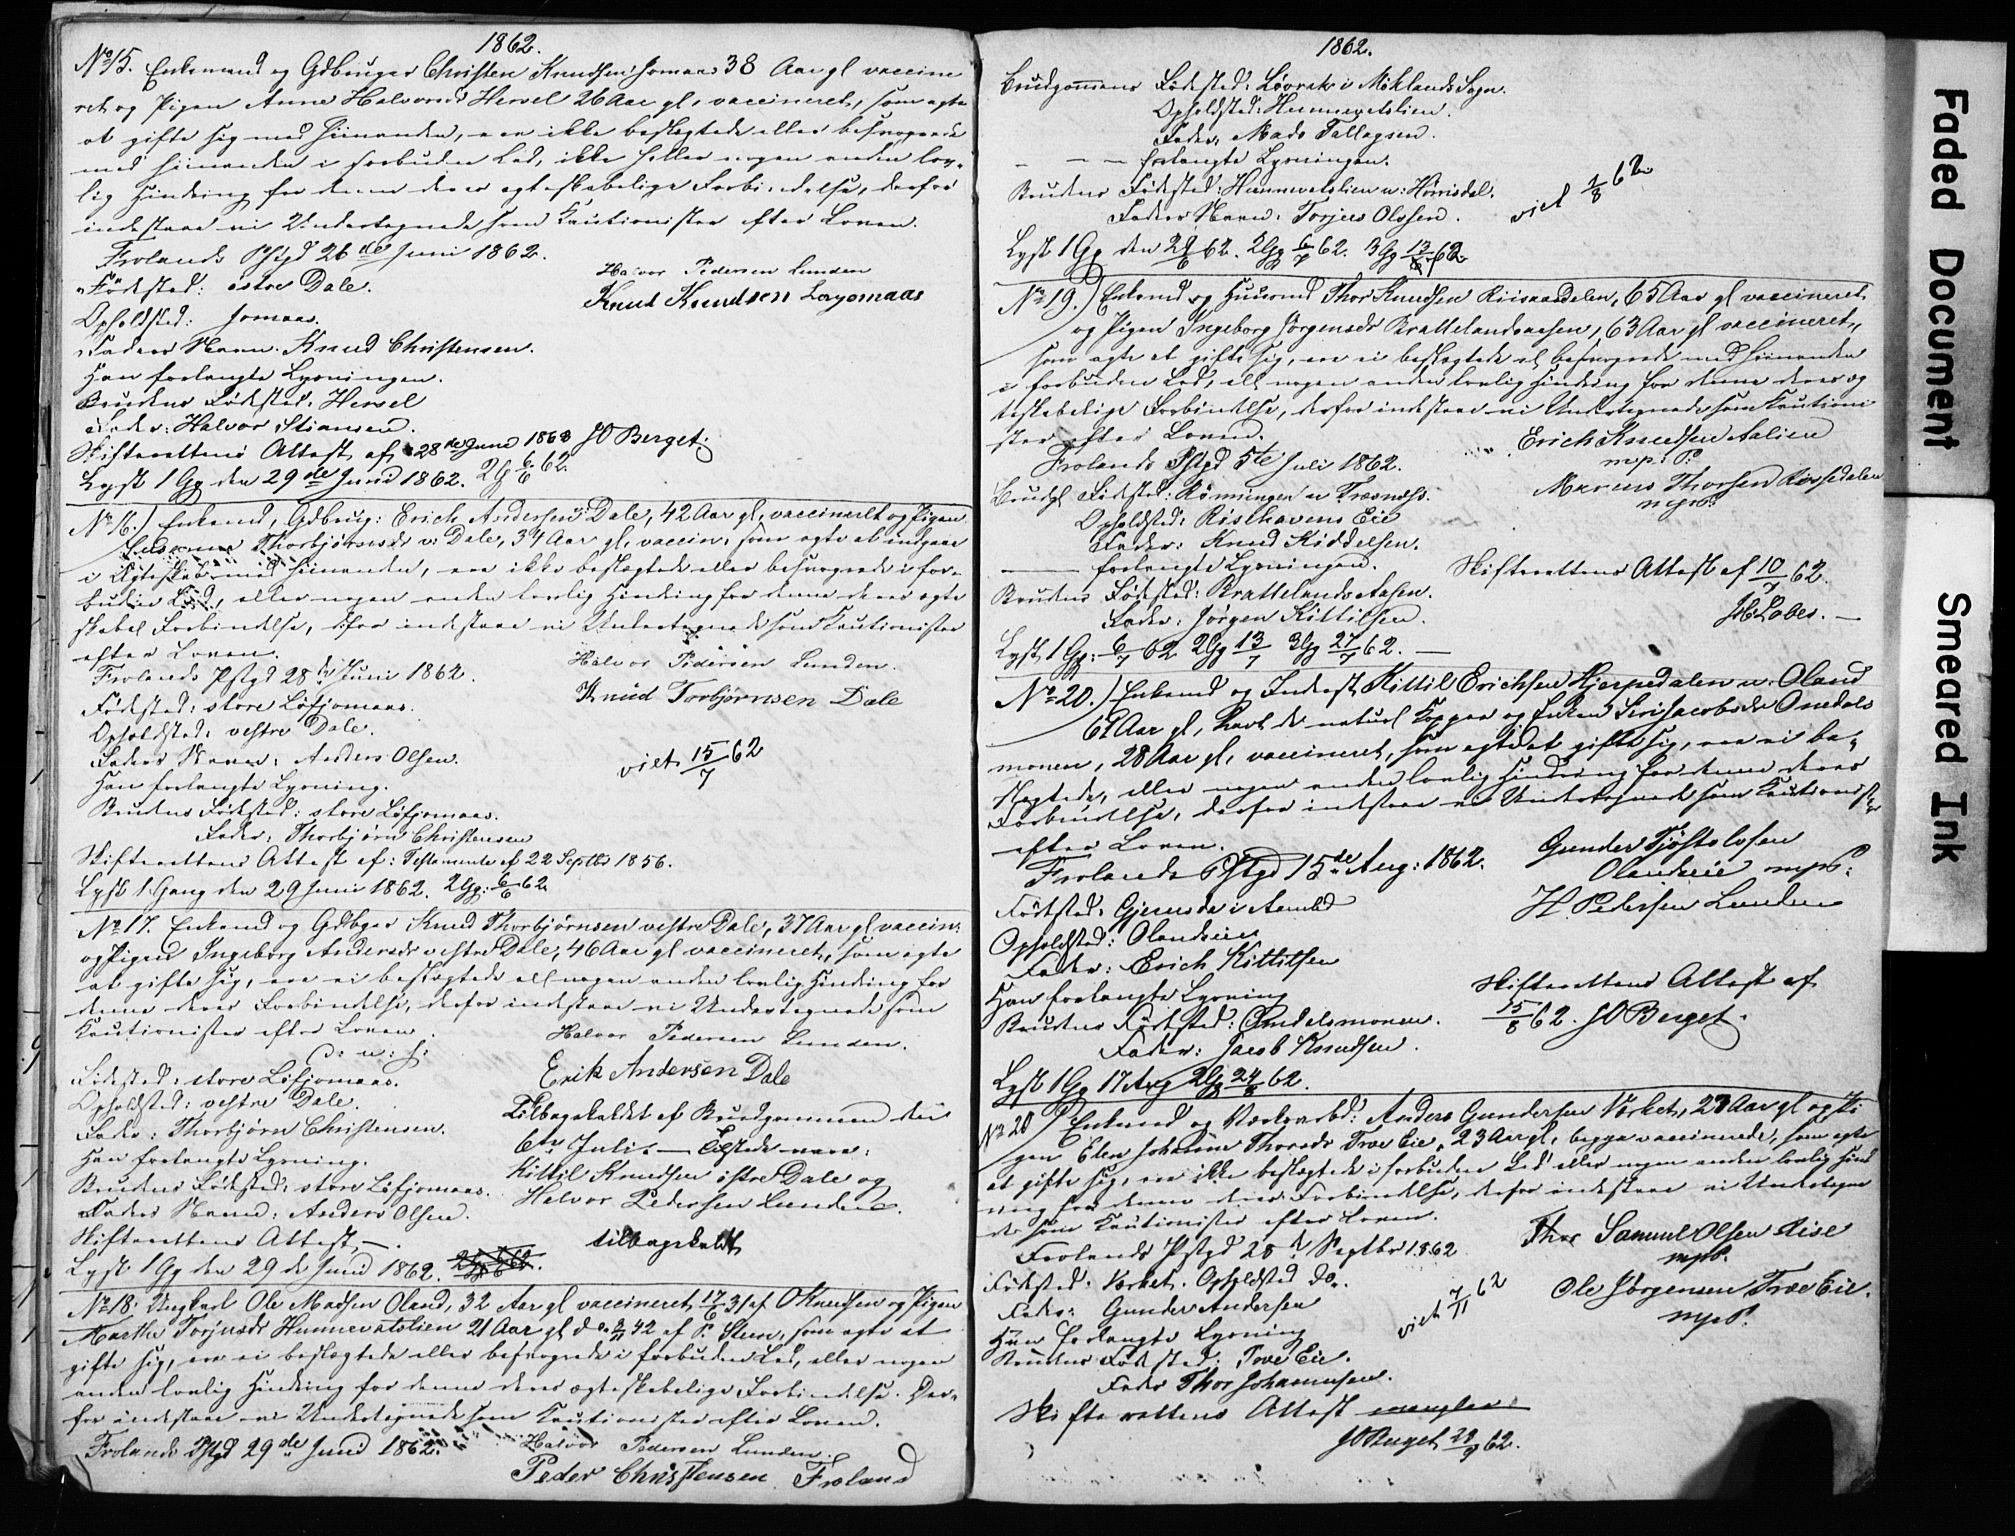 1862.
No 15. Enkemand og Gdbruger Christen Knudsen Jomaas 38 Aar gl vaccine
ret og Pigen Anne Halvorsd Hersel 26 Aar gl, vaccineret, som agte
at gifte sig med hinanden, ere ikke beslægtede eller besvogrede
med hinanden i forbuden Led, ikke heller nogen anden lov-
lig Hindring for denne deres egteskabelige Forbindelse, derfor
indestaae vi Undertegnede som Kautionister efter Loven.
Frolands Pstgd 26de Juni 1862.
Halvor Pedersen Lunden
Knud Knudsen
Fødested: østre Dale.
Opholdsted: Jomaas.
Faders Navn: Knud Christensen.
Han forlangte Lysningen.
Brudens Fødested: Hersel
Fader: Halvor Stiansen.
Skifterettens Attest af 28de Juni 1862 JO Berget.
Lyst 1 Gg den 29de Juni 1862. 2 G 6/6 62.
No 16.) Enkemd, Gdbrug: Erich Andersen Dale, 42 Aar gl, vaccineret og Pigen
Thorbjørnsdr v: Dale, 34 Aar gl, vaccin: som agte at indgaae
i Ægteskab med hinanden, ere ikke beslægtede eller besvogrede i for-
buden Led, eller nogen anden lovlig Hindring for denne deres egte
skabel Forbindelse, derfor indestaae vi Undertegnede som Kautionister
efter Loven.
Frolands Pstgd 28de Juni 1862.
Halvor Pedersen Lunden.
Knud Torbjørnsen Dale
Fødested: store Løfjomaas.
Opholdsted: vestre Dale.
Faders Navn: Anders Olsen.
Han forlangte Lysning.
viet 15/7 62
Brudens Fødested: store Løfjomaas.
Fader: Thorbjørn Christensen
Skifterettens Attest af: Testamente af 22 Septbr 1856.
Lyst 1 Gang den 29 Juni 1862. 2 Gg: 6/6 62
No 17. Enkemd og Gdbgr Knud Thorbjørnsen vestre Dale, 37 Aar gl vaccin:
og Pigen Ingeborg Andersdr vestre Dale, 46 Aar gl vaccineret, som agte
at gifte sig, ere ei beslægtede ell nogen anden lovlig Hindring for
denne deres Forbindelse, derfor indestaae vi Undertegnede som
Kautionister efter Loven.
Halvor Pedersen Lunden.
D: u: s:
Erik Andersen Dale
Fødested: store Løfjomaas.
Opholdsted: vestre Dale.
Fader: Thorbjørn Christensen.
Han forlangte Lysning.
Brudens Fødested: store Løfjomaas.
Faders Navn: Anders Olsen.
Skifterettens Attest, —.
Lyst 1 Gg den 29 de Juni 1862.
Tilbagekaldt af Brudgommen den
6te Juli. — Tilstede vare:
Kittil Knudsen østre Dale og
Halvor Pedersen Lunden.
tilbagekaldt
No 18: Ungkarl Ole Madsen Oland, 32 Aar gl vaccineret 17/6 31 af O Knudsen og Pigen
Marthe Torjusdr Hunnevatslien 21 Aar gl do 9/11 42 af P. Steen, som agte at
gifte sig, ere ei beslægtede eller besvogrede i forbuden Led, eller nogen
anden lovlig Hindring for denne deres ægteskabelige Forbindelse. Der-
for indestaae vi Undertegnede som Kautionister efter Loven.
Frolands Pstgd 29de Juni 1862.
Halvor Pedersen Lunden.
Peder Christensen Froland
1862.
Brudgommens Fødested: Løvrak i Mÿklands Sogn.
Opholdsted: Hunnevatslien.
Fader, Mads Tallagsen.
— — — forlangte Lysningen.
Brudens Fødested: Hunnevatslien u: Hørrisdal.
Faders Navn: Torjus Olsen.
viet 1/8 62
Lyst 1 Gg den 29/6 62. 2 Gg 6/7 62. 3 Gg 13/7 62
No 19.) Enkemd og Huusmd Thor Knudsen Riisaasdalen, 65 Aar gl vaccineret
og Pigen Ingeborg Jørgensdr Brattelandsaasen, 63 Aar gl vaccineret,
som agte at gifte sig, ere ei beslægtede el besvogrede med hinanden
i forbuden Led, ell nogen anden lovlig Hindring for denne deres æg
teskabelige Forbindelse, derfor indestaae vi Undertegnede som Kautioni
ster efter Loven.
Frolands Pstgd 5te Juli 1862.
Erich Knudsen Aalien
m. p. P:
Marcus Thorsen
m p P.
Brudg Fødested: Rønningen u Træsnæs.
Opholdsted: Risthavens Eie
Fader: Knud Kiddelsen.
— forlangte Lysningen.
Skifterettens Attest af 10/7 62.
Brudens Fødested: Brattelandsaasen.
Fader: Jørgen Kittilsen.
Lyst 1 Gg: 6/7 62 2 Gg 13/7 3 Gg 27/7 62. —
No 20.) Enkemd og Inderst Kittil Erichsen Hjerpedalen u: Oland
61 Aar gl, havt de naturl Kopper og Enken Siri Jacobsdr Omdals
monen, 28 Aar gl, vaccineret, som agte at gifte sig, ere ei be-
slegtede, eller nogen anden lovlig Hindring for denne deres
Forbindelse, derfor indestaae vi Undertegnede som Kautionister
efter Loven.
Frolands Pstgd 15de Aug: 1862.
Gunder Tjøstolvsen
Olandseie mpP:
H. Pedersen Lunden
Fødested: i Aamlid
Opholdsted: Olandseie
Fader: Erich Kittilsen
Han forlangte Lysning
Skifterettens Attest af
15/8 62. JO Berget.
Brudens Fødested: Omdalsmonen.
Fader: Jacob Knudsen.
Lyst 1 Gg 17 Aug 2 Gg 24/8 62.
No 20 Enkemd og Værksarbd: Anders Gundersen Værket, 27 Aar gl og Pi
gen Elen Johanne Thorsdr Træe Eie, 23 Aar gl, begge vaccinerede, som agte
at gifte sig, ere ikke beslægtede i forbuden Led eller nogen anden lovlig Hind
ring for denne deres Forbindelse, derfor indestaae vi Undertegne
de som Kautionister efter Loven.
Frolands Pstgd 28de Septbr 1862
Thor Samuel Olsen Rise
mpP.
Ole Jørgensen Træe Eie.
mpP.
Fødested: Værket. Opholdsted do.
Fader: Gunder Andersen
Han forlangte Lysning
viet 7/11 62
Brudens Fødested: Træe Eie.
Fader Thor Johannesen.
Skifterettens Attest mangler.
JO Berget 28/9 62.
Faded Document
Smeared Ink